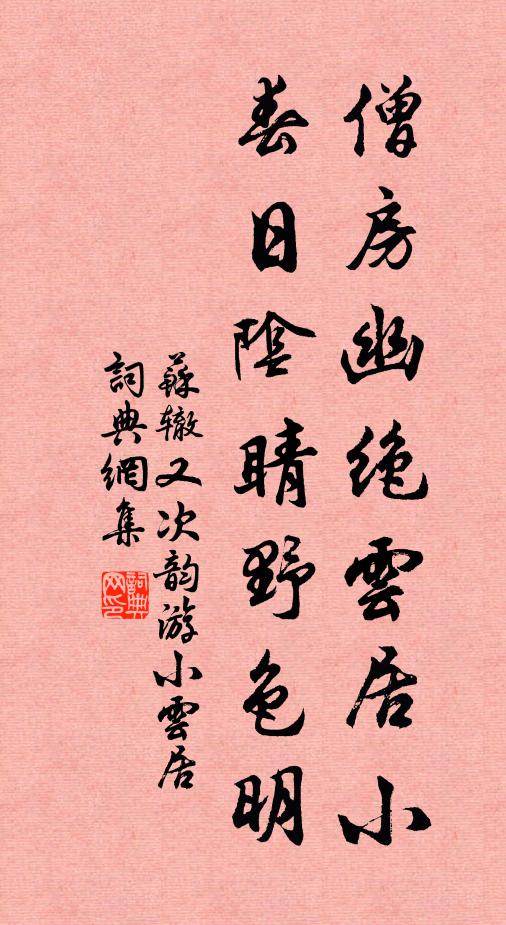 僧房幽绝雲居小
春日陰晴野色明
蘇辙又次韵游小雲居
詞典網集
詞典网印